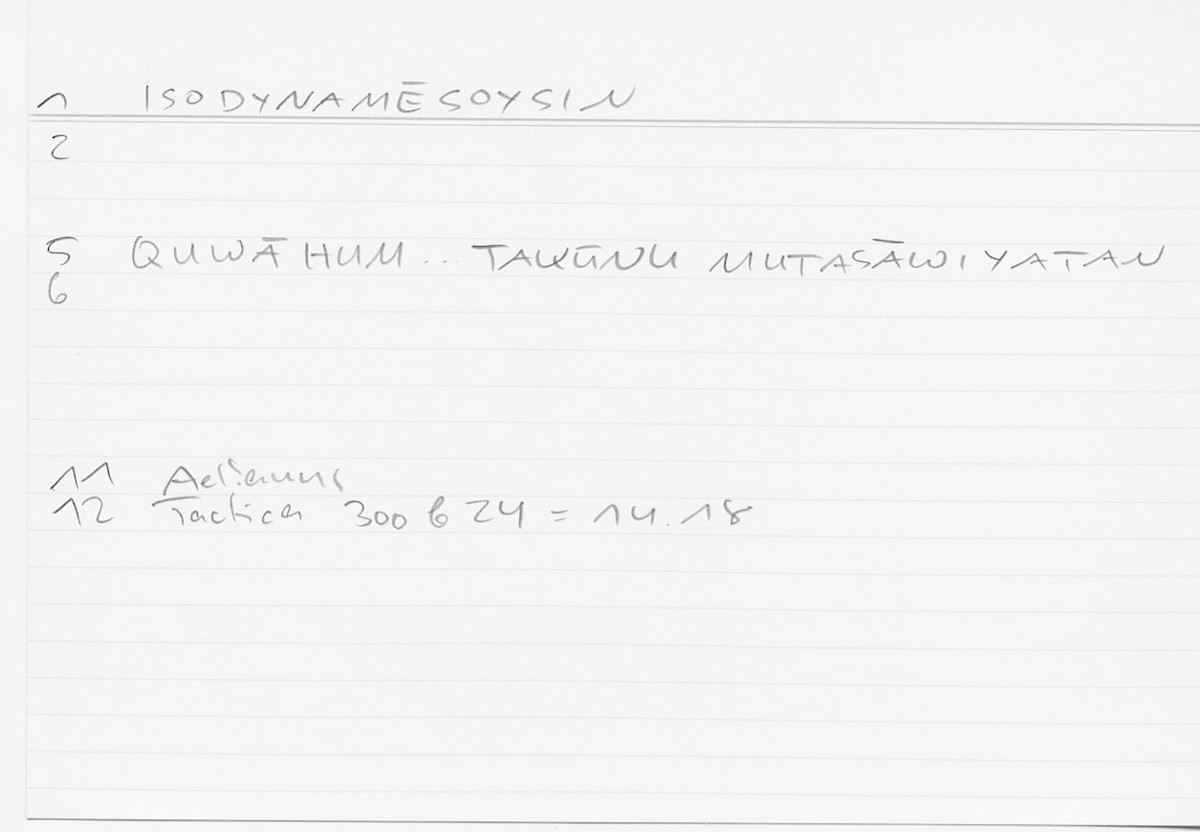 1 ISODYNAMĒSOYSIN
2
5 QUWĀHUM... TAKŪNU MUTASĀWIYATAN
6
11 Aelianus
12 Tactica 300 b 24 = 14.18